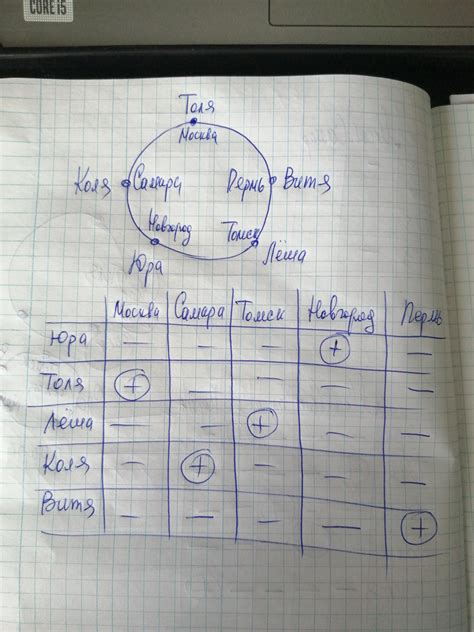 CORE i5
Толя
Москва
Коля Самара Пермь Витя
Новгород Томск
Юра Лёша
Москва Самара Томск Новгород Пермь
Юра — — — + —
Толя + — — — —
Лёша — — + — —
Коля — + — — —
Витя — — — — +